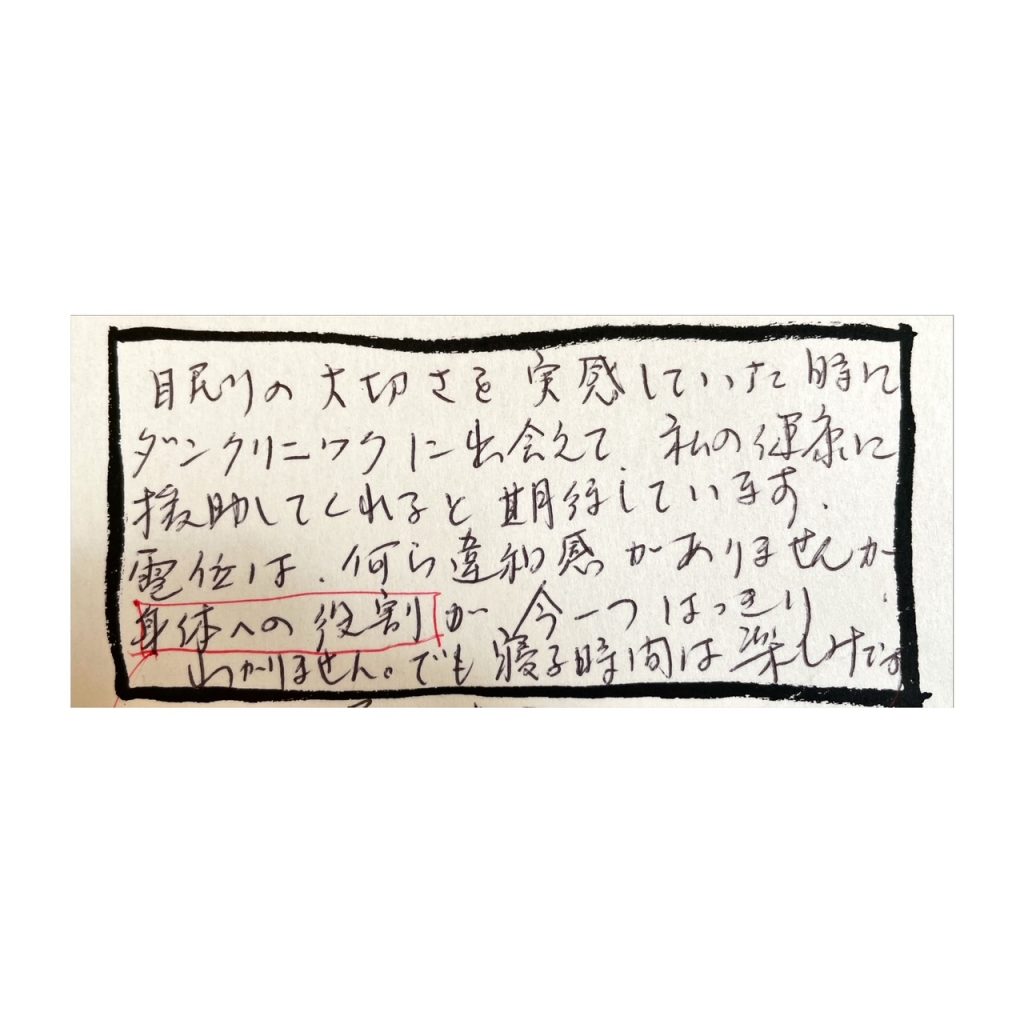 眠りの大切さを実感していた時に
ダンクリニックに出会えて、私の健康に
援助してくれると期待しています。
電位は、何ら違和感がありませんが
身体への役割が今一つはっきり
わかりません。でも寝る時間は楽しみです